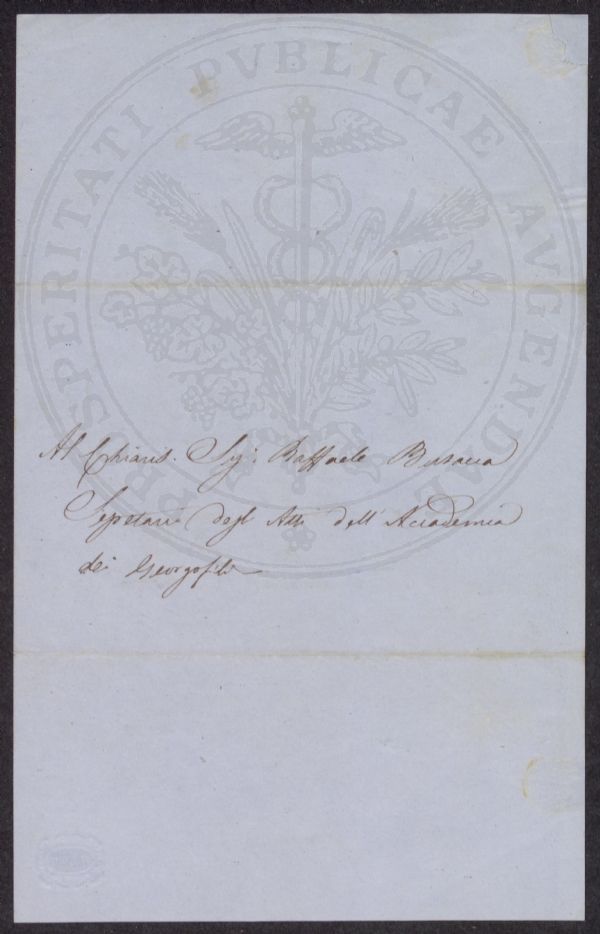 PROSPERITATI PVBLICAE AVGENDAE
Al Chiaris. Sig: Raffaele Busacca
Segretario degli Atti dell'Accademia
dei Georgofili